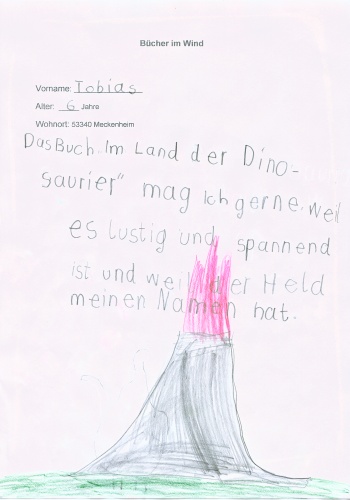 Bücher im Wind
Vorname: Tobias
Alter: 6 Jahre
Wohnort: 53340 Meckenheim
Das Buch „Im Land der Dino-
saurier“ mag ich gerne, weil
es lustig und spannend
ist und weil der Held
meinen Namen hat.